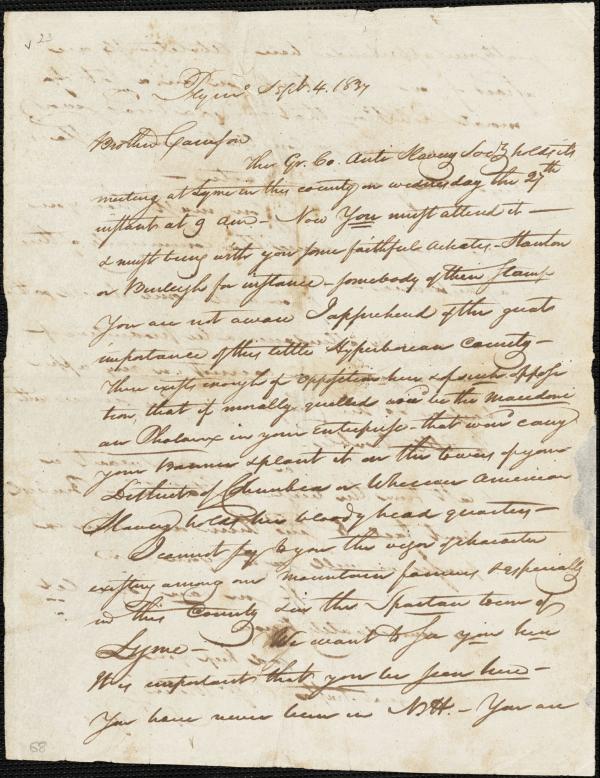 Plymo Sept. 4. 1837
Brother Garrison
The Gr. Co. Anti Slavery Socy holds its
meeting at Lyme in this county on wednesday the 27th
instant at 9 am - Now You must attend it -
& must bring with you some faithful Achates - Stanton
or Burleigh for instance - somebody of their stamp
You are not aware I apprehend of the great
importance of this little Hyperborean County -
There exists enough of opposition here & of such opposi
tion, that if morally quelled wd be the Macedoni
an Phalanx in your Enterprise - that wd carry
your banner & plant it on the towers of your
District of Columbia or Wherever American
Slavery holds her bloody head quarters -
I cannot say to you the vigor of character
existing among our mountain farmers & especially
in this County & in the Spartan town of
Lyme - We want to see you here
It is important that you be seen here -
You have never been in N.H. - You are
68